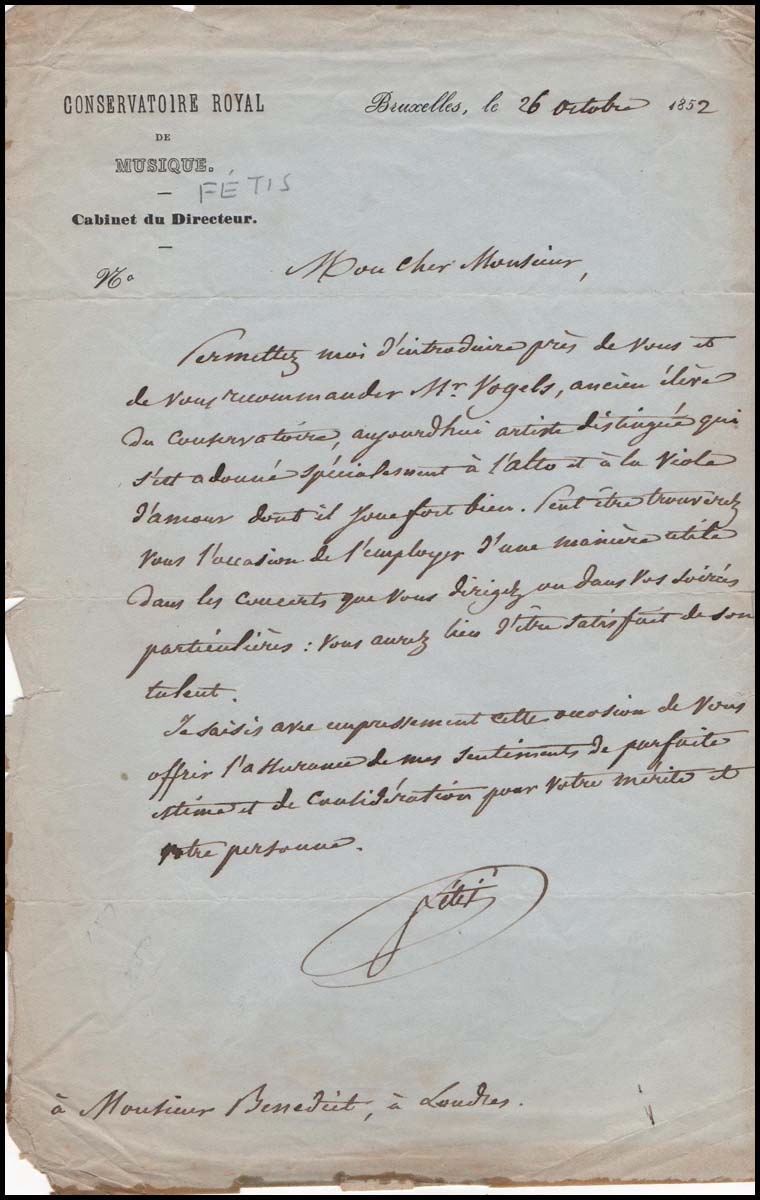 CONSERVATOIRE ROYAL
DE
MUSIQUE.
FÉTIS
Cabinet du Directeur.
Bruxelles, le 26 Octobre 1852
No
Mon cher Monsieur,
Permettez moi d'introduire près de vous et
de vous recommander Mr. Vogels, ancien élève
du conservatoire, aujourdhui artiste distingué qui
s'est adonné spécialement à l'alto et à la viole
d'amour dont il joue fort bien. Peut être trouverez
vous l'occasion de l'employer d'une manière utile
dans les concerts que vous dirigez ou dans vos soirées
particulières : vous aurez lieu d'être satisfait de son
talent.
Je saisis avec empressement cette occasion de vous
offrir l'assurance de mes sentiments de parfaite
estime et de considération pour votre mérite et
votre personne.
Fétis
à Monsieur Benedict, à Londres.